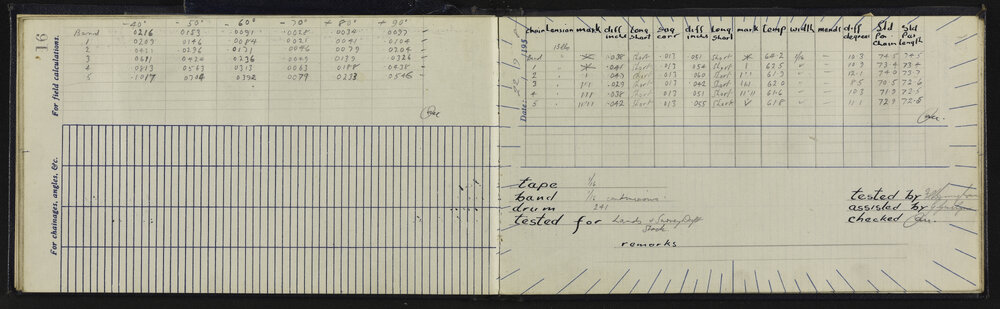 16
For field calculations.
- 40° - 50° - 60° - 70° + 80° + 90°
Band 0216 0153 0091 0028 0034 0097
1 0209 0146 0084 0021 0041 0104
2 0421 0296 0171 0046 0079 0204
3 0611 0424 0236 0049 0139 0326
4 0813 0563 0313 0063 0188 0438
5 1017 0704 0392 0079 0233 0546
For chainages, angles, &c.
Date: 22 / 9 / 1958
chain tension mark diff inches Long Short sag corr diff inches Long Short mark temp width mend diff degrees Std Par. Chain Std Par length
15 lbs
Band 038 Short 013 051 Short 64.2 1/16 10.3 74.5 74.5
1 041 Short 013 054 Short 1 63.5 10.3 73.4 73.4
2 1 047 Short 013 060 Short 1'1 61.9 12.1 74.0 73.7
3 1'1 029 Short 013 042 Short 1'11 62.0 8.5 70.5 72.6
4 11'1 038 Short 013 051 Short 11'11 61.6 10.3 71.9 72.5
5 11'11 042 Short 013 055 Short V 61.8 11.1 72.9 72.5
tape 1/16
band 1/16 continuous
drum 241
tested for Lands & Survey Dept
Stock
remarks
tested by
assisted by
checked